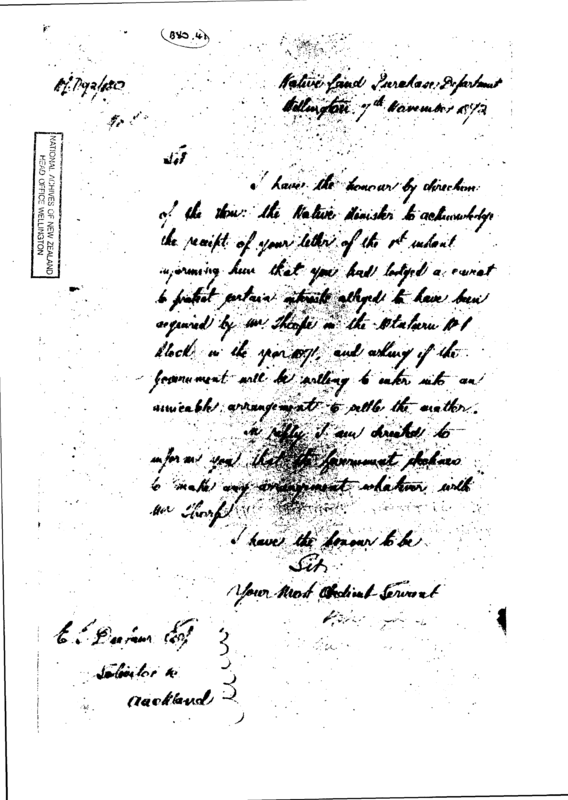 Native Land Purchase Department
Wellington 7th November
NATIONAL ACHIVES OF NEW ZEALAND
HEAD OFFICE WELLINGTON
Sir
I have the honour by direction
of the Hon: the Native Minister to acknowledge
the receipt of your letter of the 1st instant
informing him that you had lodged a caveat
to protect certain interests alleged to have been
acquired by Mr Thorpe in the
Block in the year 1871, and asking if the
Government will be willing to enter into an
amicable arrangement to settle the matter.
In reply I am directed to
inform you that the Government declines
to make any arrangement whatever with
Mr Thorpe
I have the honour to be
Sir
Your Most Obedient Servant
Esq
Solicitor
Auckland